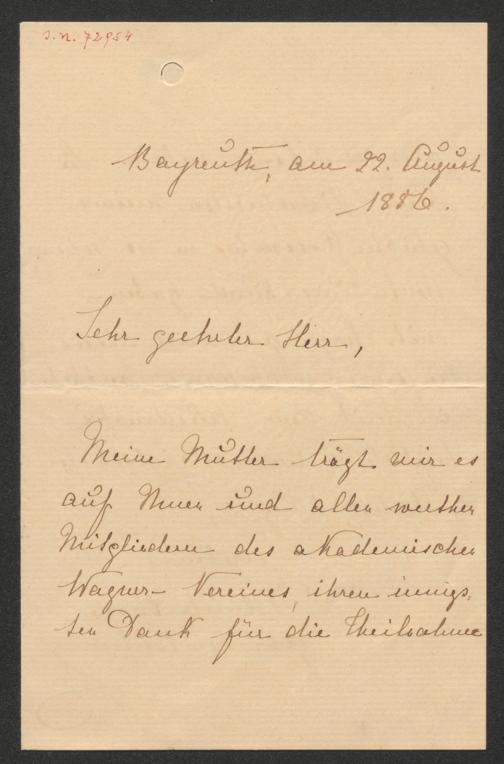 I.N. 72954
Bayreuth, am 22. August
1886.
Sehr geehrter Herr,
Meine Mutter trägt mir es
auf Ihnen und allen werthen
Mitgliedern des akademischen
Wagner- Vereines, ihren innigs-
ten Dank für die Theilnahme